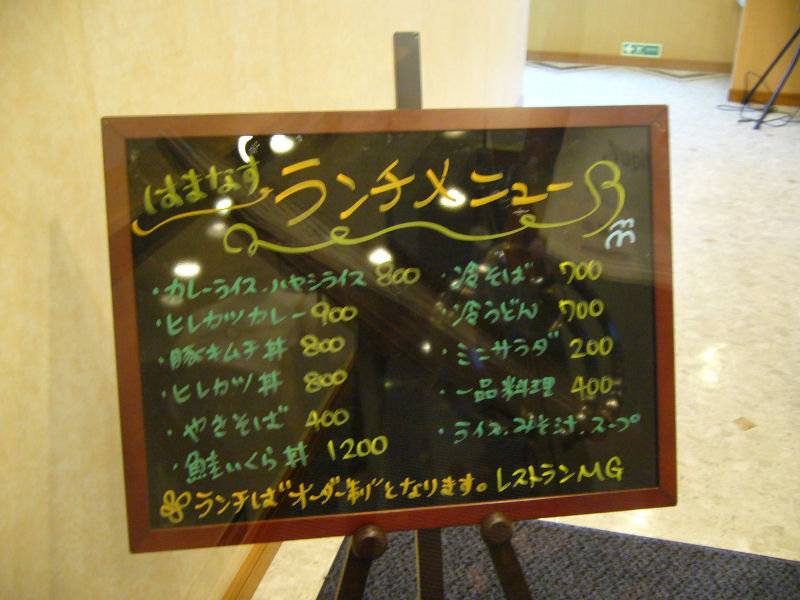 はまなす ランチメニュー
・カレーライス.ハヤシライス 800
・ヒレカツカレー 900
・豚キムチ丼 800
・ヒレカツ丼 800
・やきそば 400
・鮭いくら丼 1200
・冷そば 700
・冷うどん 700
・ミニサラダ 200
・一品料理 400
・ライス.みそ汁.スープ
ランチしば オーダー制 となります。レストランMG